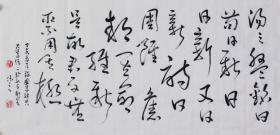 湯之盤銘曰
苟日新日
日新又日
新詩曰
周雖舊
邦其命
維新
是故君子無
所不用其極